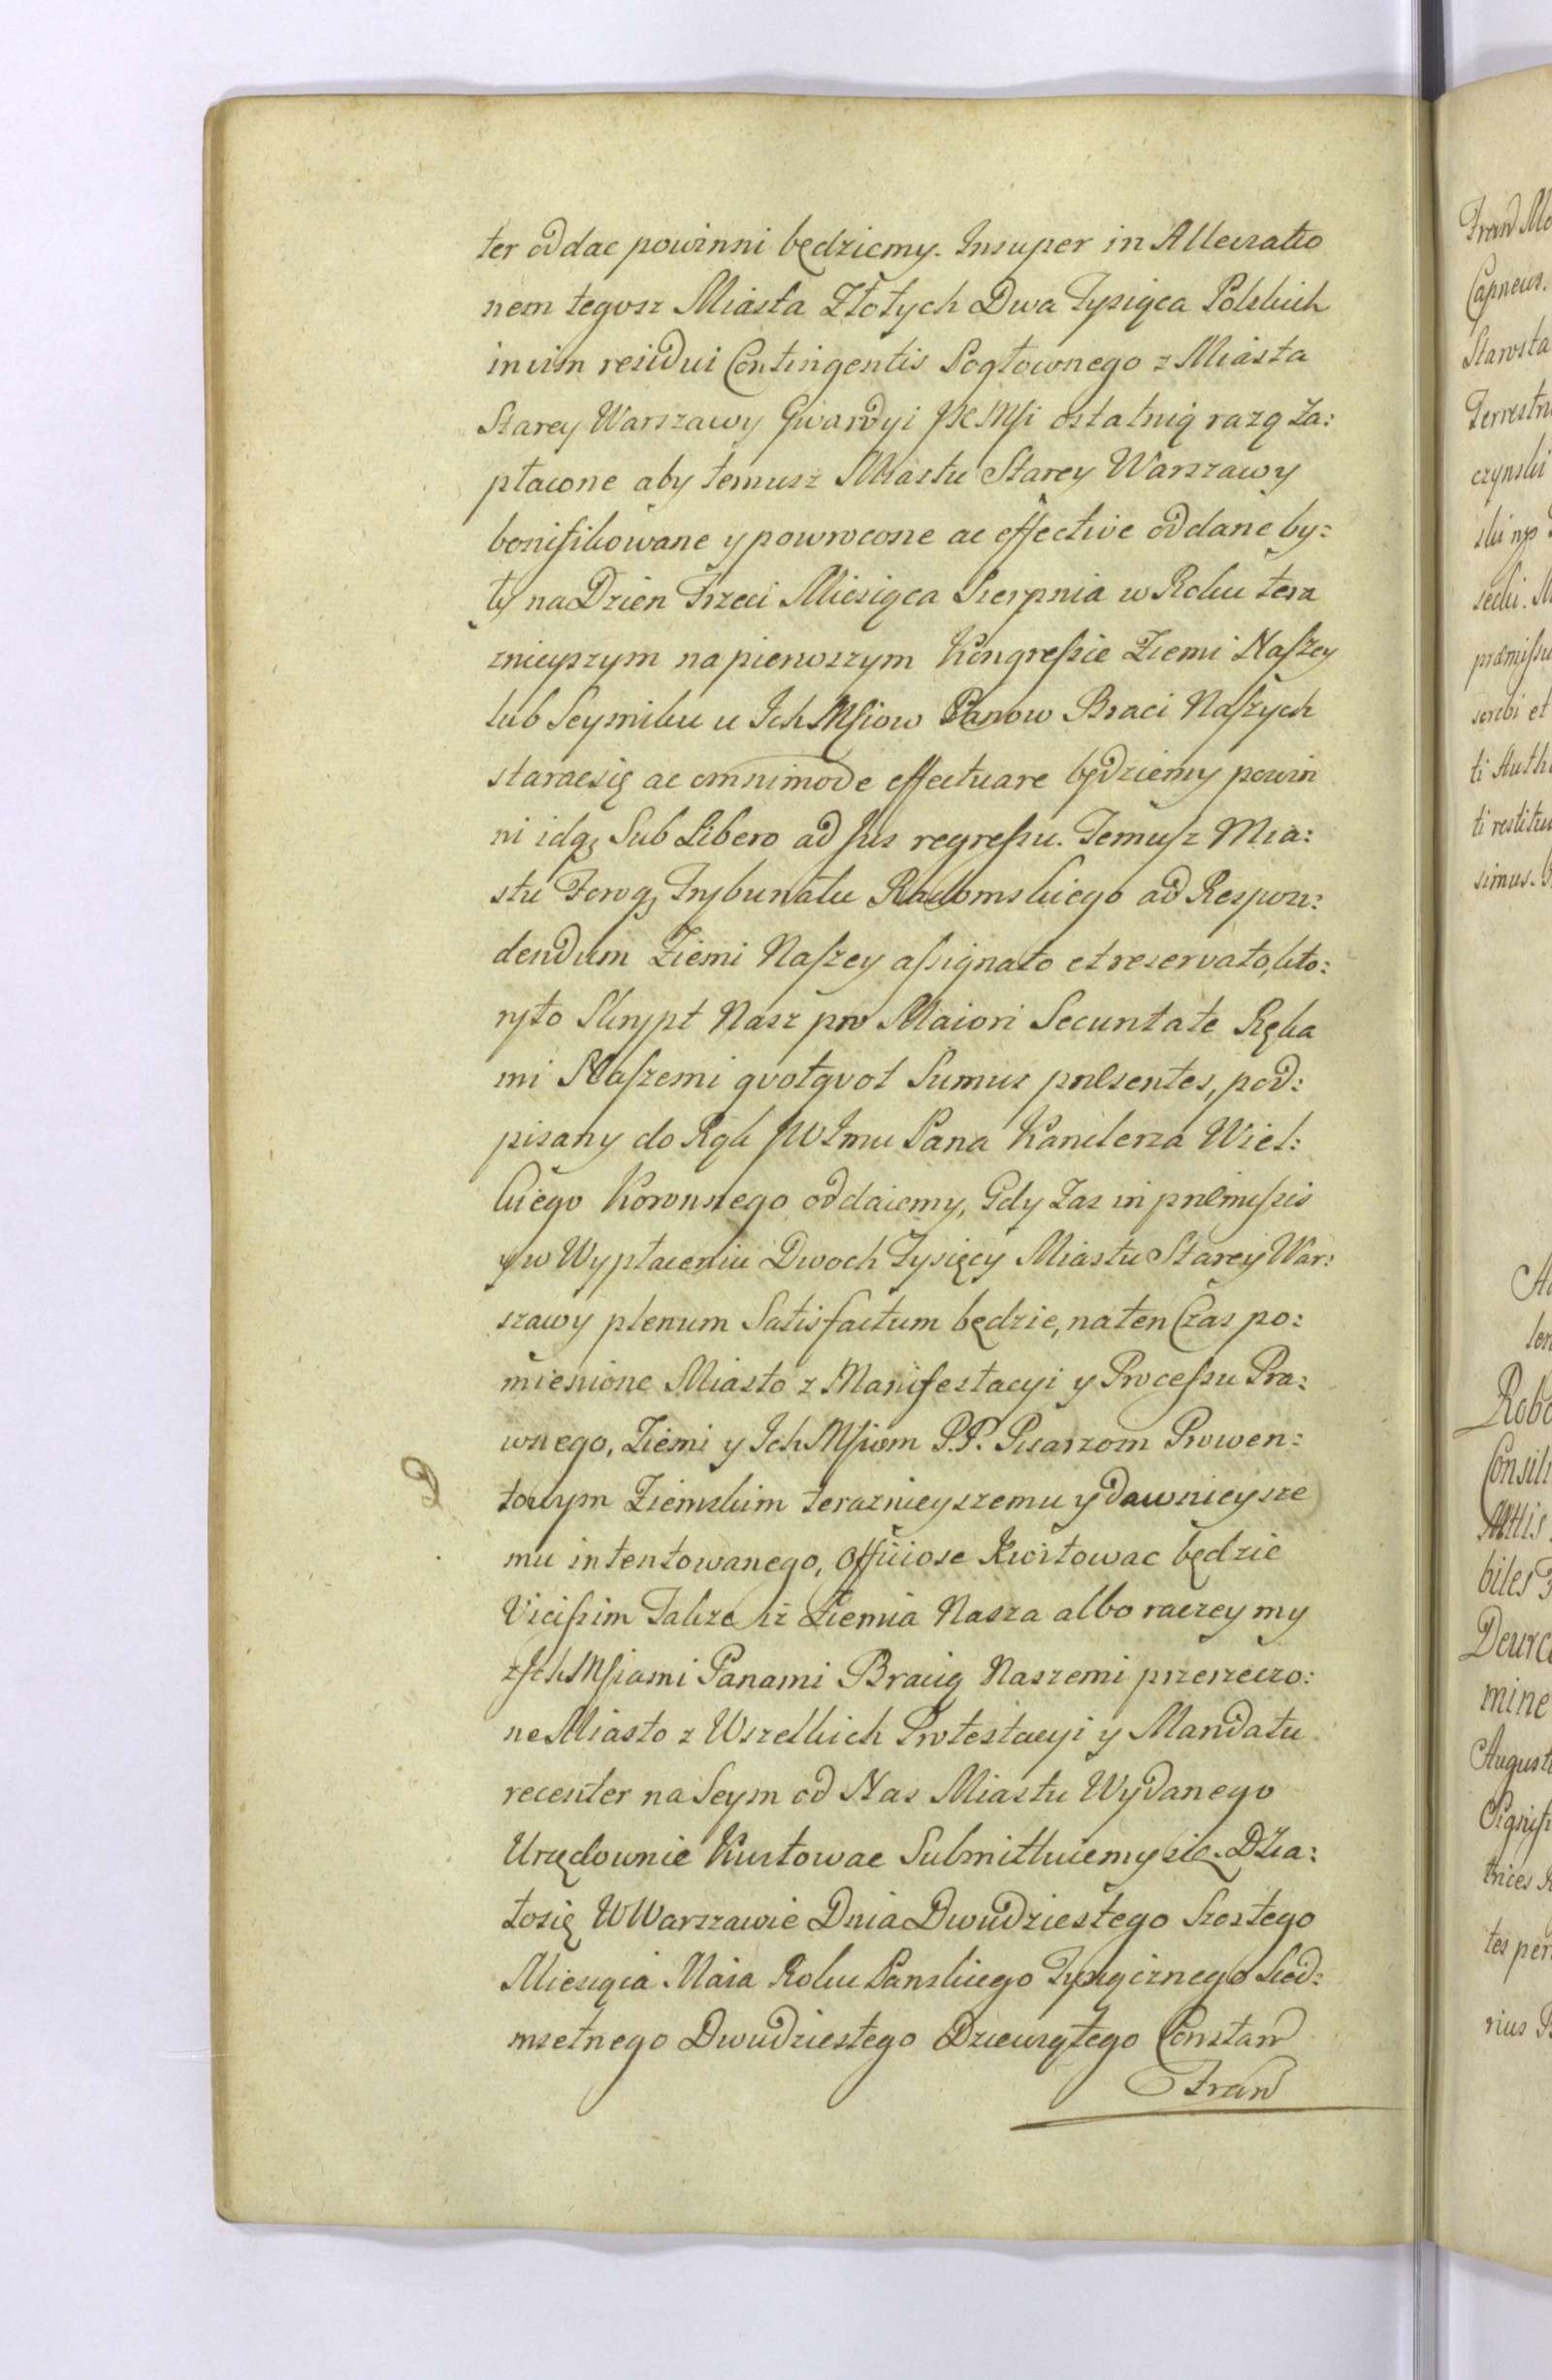 ter oddac powinni będziemy. Insuper in Alleviatio
nem tegosz Miasta Złotych Dwa Tysiąca Polskich
in vim residui Contingentis Pogłownego z Miasta
Starey Warszawy Gwardyi JKMsi ostatnią razą Za:
płacone aby temusz Miastu Starey Warszawy
bonifikowane y powrocone ac effective oddane by:
ły na Dzien Trzeci Miesiąca Sierpnia w Roku tera
znieyszym na pierwszym Kongreſsie Ziemi Naſzey
lub Seymiku u Ich Mſiow Panow Braci Naſzych
staracsię ac omnimode effectuare będziemy powin
ni idq; Sub Libero ad Jus regreſsu. Temuſz Mia:
stu Foroq; Trybunału Radomskiego ad Respon:
dendum Ziemi Naſzey aſsignato et reservato, kto:
ryto Skrypt Nasz pro Maiori Securitate Ręka
mi Naſzemi qvotqvot Sumus pnlsentes, pod:
pisany do Rąk JW Imu Pana Kanclerza Wiel:
kiego Koronnego oddaiemy, Gdy Zas in pnlmiſsis
y w Wypłaceniu Dwoch Tysięcy Miastu Starey War:
szawy plenum Satisfactum będzie, na ten Czas po:
mienione Miasto z Manifestacyi y Proceſsu Pra:
wnego, Ziemi y Ich Mſiom P.P. Pisarzom Prowen:
towym Ziemskim teraznieyszemu y dawnieysze
mu intentowanego, Officiose Kwitowac będzie
Viciſsim Takze iż Ziemia Nasza albo raczey my
z Ich Mſiami Panami Bracią Naszemi przerzeczo:
ne Miasto z Wszelkich Protestacyi y Mandatu
recenter na Seym od Nas Miastu Wydanego
Urzędownie Kwitowac Submittuiemy się. Dzia:
łosię W Warszawie Dnia Dwudziestego Szostego
Miesiąca Maia Roku Panskiego Tysiącznego Sied:
msetnego Dwudziestego Dziewiątego Constan
Fran